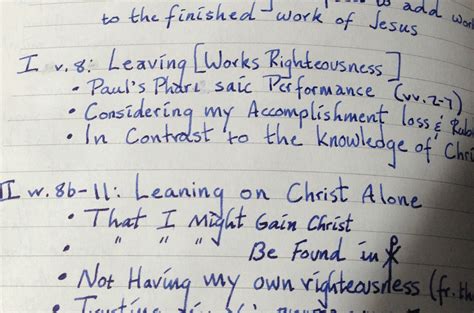 to add work
to the finished work of Jesus
I v. 8: Leaving [Works Righteousness]
• Paul's Pharisaic Performance (vv. 2-7)
• Considering my Accomplishment loss &
• In Contrast to the Knowledge of
II vv. 8b-11: Leaning on Christ Alone
• That I Might Gain Christ
• " " " Be Found in ☧
• Not Having my own righteousness (fr. th
•